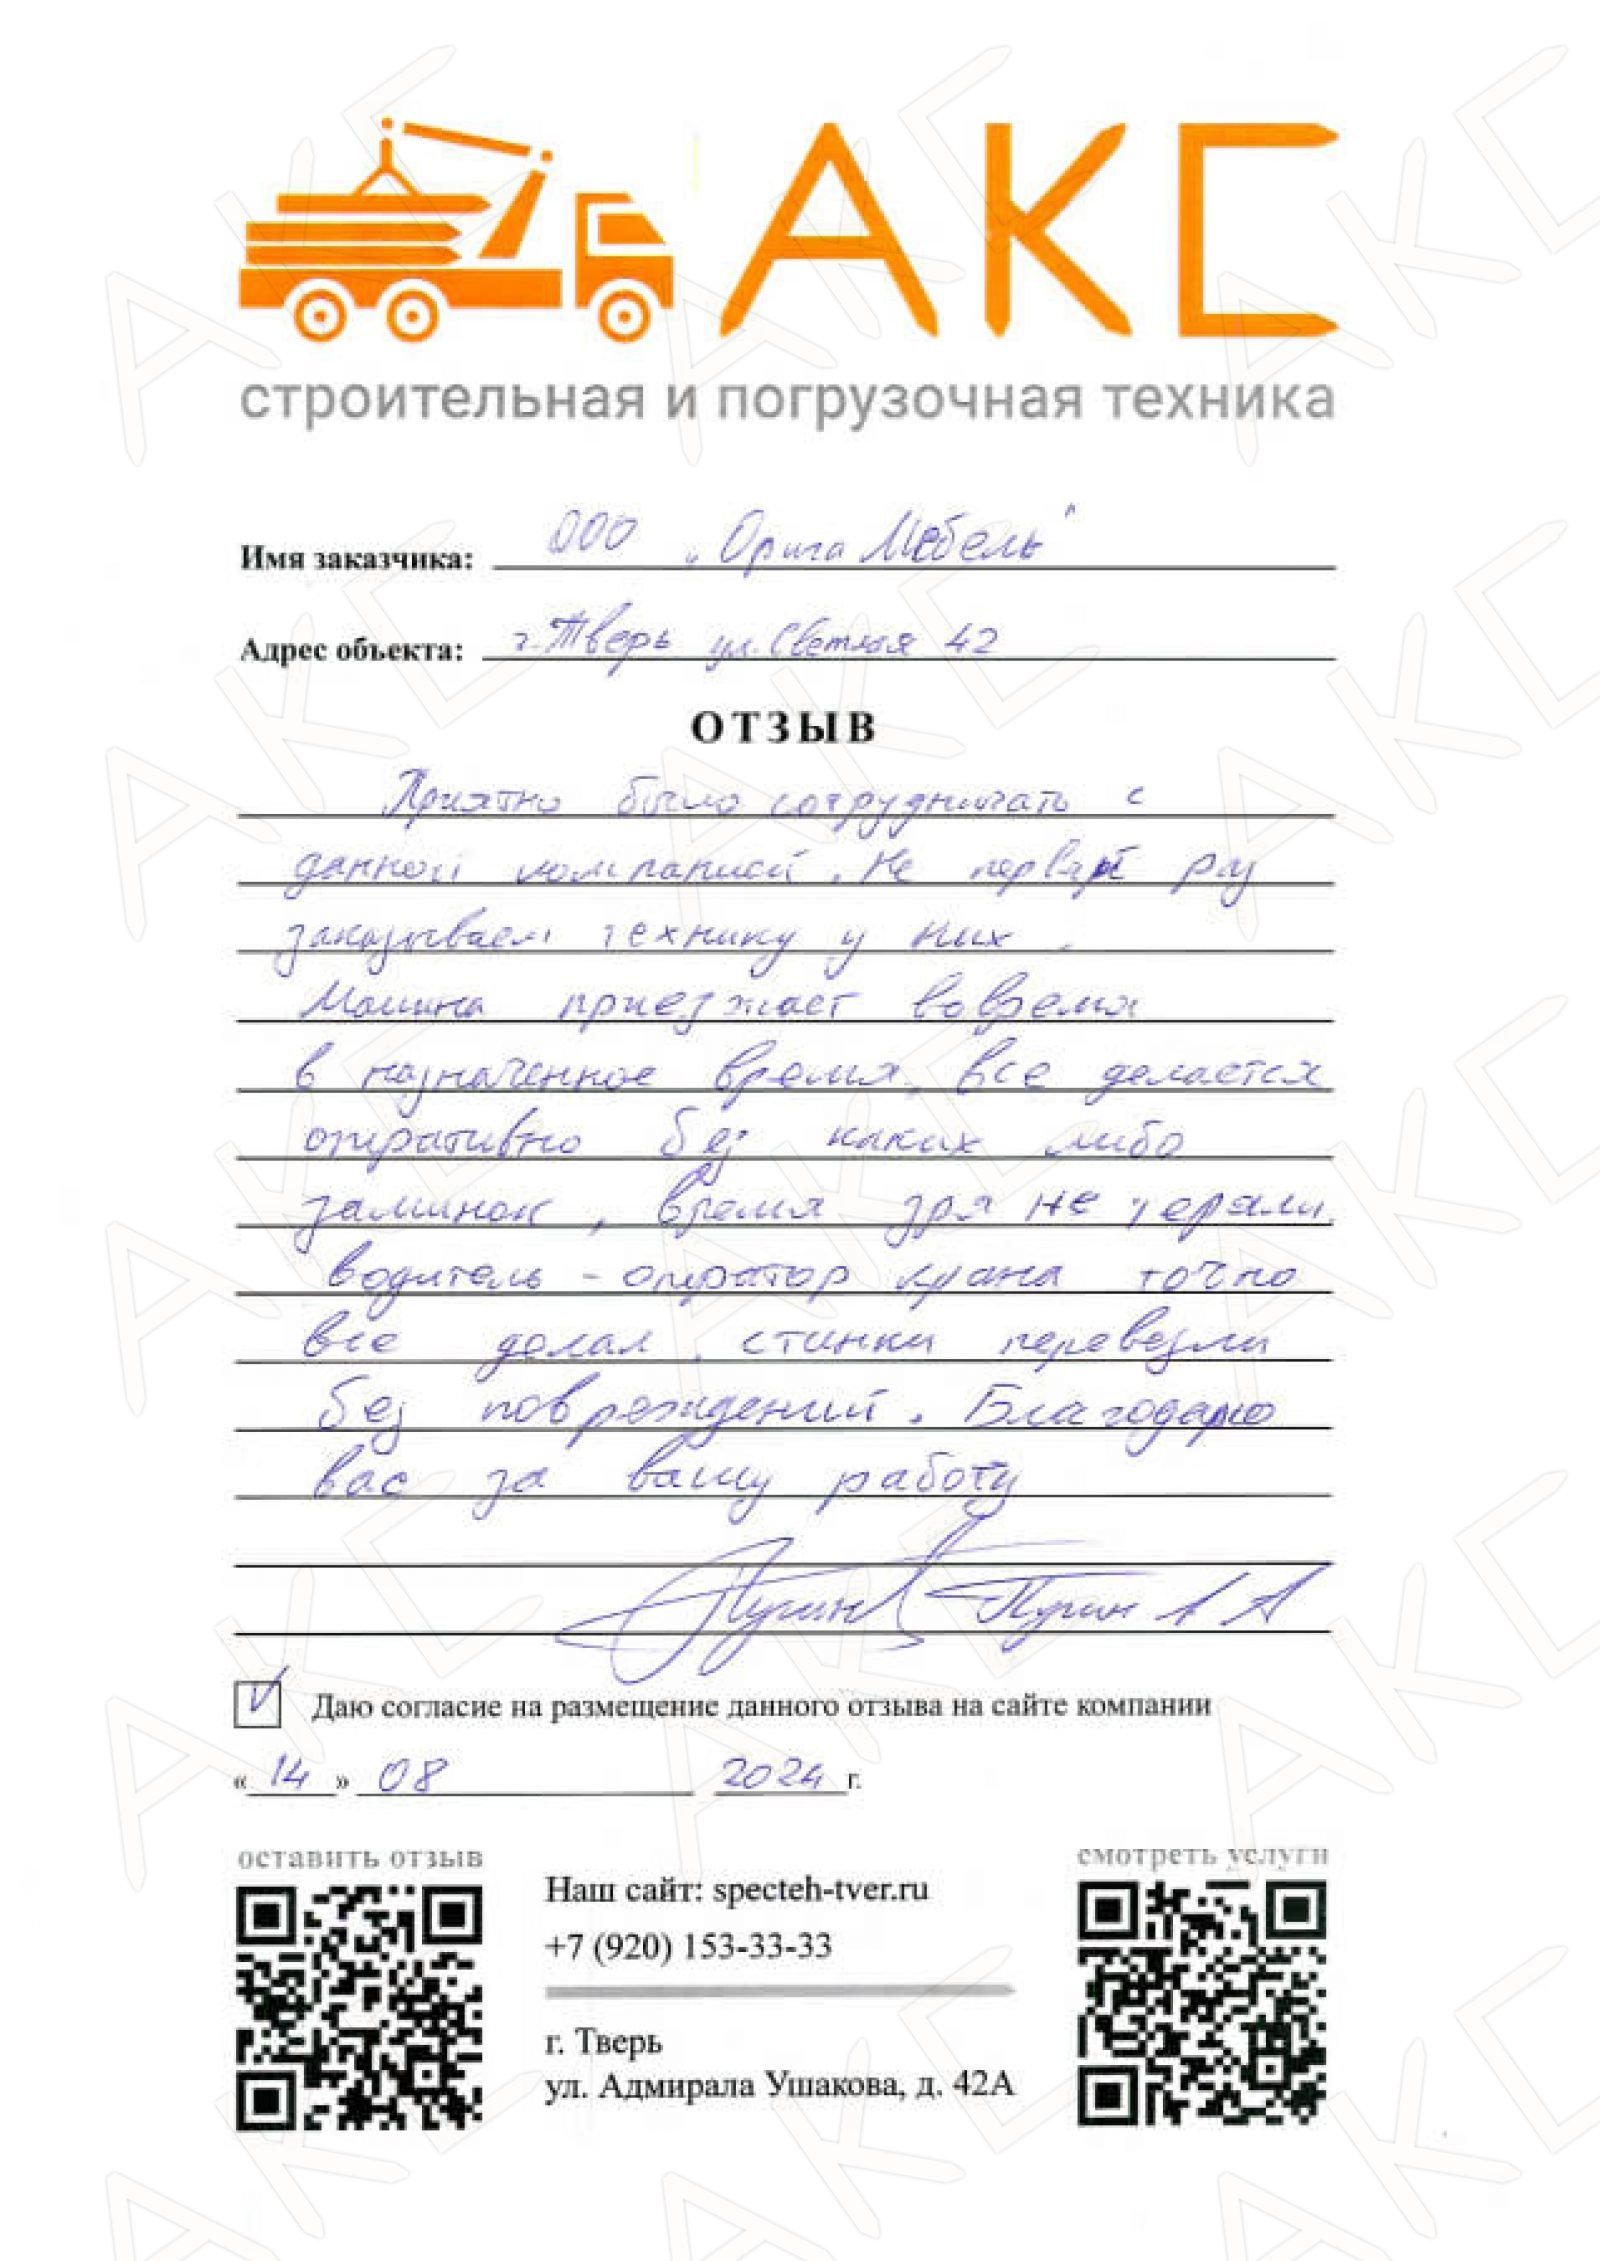 АКС
строительная и погрузочная техника
Имя заказчика: ООО "Орига Мебель"
Адрес объекта: г. Тверь ул. Светлая 42
ОТЗЫВ
Приятно было сотрудничать с
данной компанией. Не первый раз
заказываем технику у них.
Машина приезжает вовремя
в назначенное время, все делается
оперативно без каких либо
заминок, время зря не теряли.
водитель - оператор крана точно
все делал, станки перевезли
без повреждений. Благодарю
вас за вашу работу
Пугин А А
V Даю согласие на размещение данного отзыва на сайте компании
« 14 » 08 2024 г.
оставить отзыв
смотреть услуги
Наш сайт: specteh-tver.ru
+7 (920) 153-33-33
г. Тверь
ул. Адмирала Ушакова, д. 42А